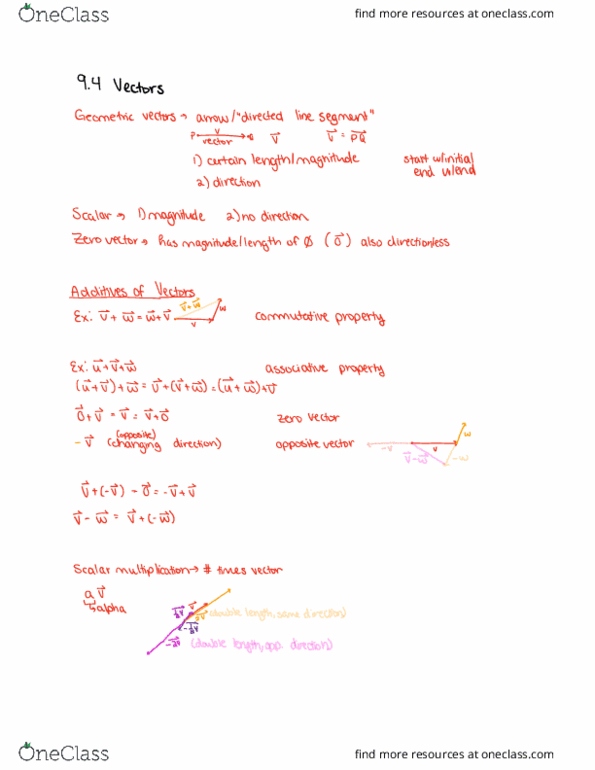 OneClass
find more resources at oneclass.com
9.4 Vectors
Geometric vectors → arrow/"directed line segment"
P v Q
vector
v⃗
v⃗ = PQ⃗
1) certain length/magnitude
start w/initial
end w/end
2) direction
Scalar → 1) magnitude 2) no direction
Zero vector → has magnitude/length of ∅ (0⃗) also directionless
Additives of Vectors
Ex: v⃗ + w⃗ = w⃗ + v⃗
v⃗+w⃗
w
v
commutative property
Ex: u⃗+v⃗+w⃗
associative property
(u⃗+v⃗)+w⃗ = v⃗+(v⃗+w⃗) = (u⃗+w⃗)+v⃗
0⃗+v⃗ = v⃗ = v⃗+0⃗
zero vector
(opposite)
-v⃗ (changing direction)
opposite vector
-v
v
w
v⃗-w⃗
-w
v⃗+(-v⃗) - 0⃗ = -v⃗+v⃗
v⃗ - w⃗ = v⃗+(-w⃗)
Scalar multiplication → # times vector
a v⃗
↳ alpha
v
(double length, same direction)
(double length, opp. direction)
OneClass
find more resources at oneclass.com